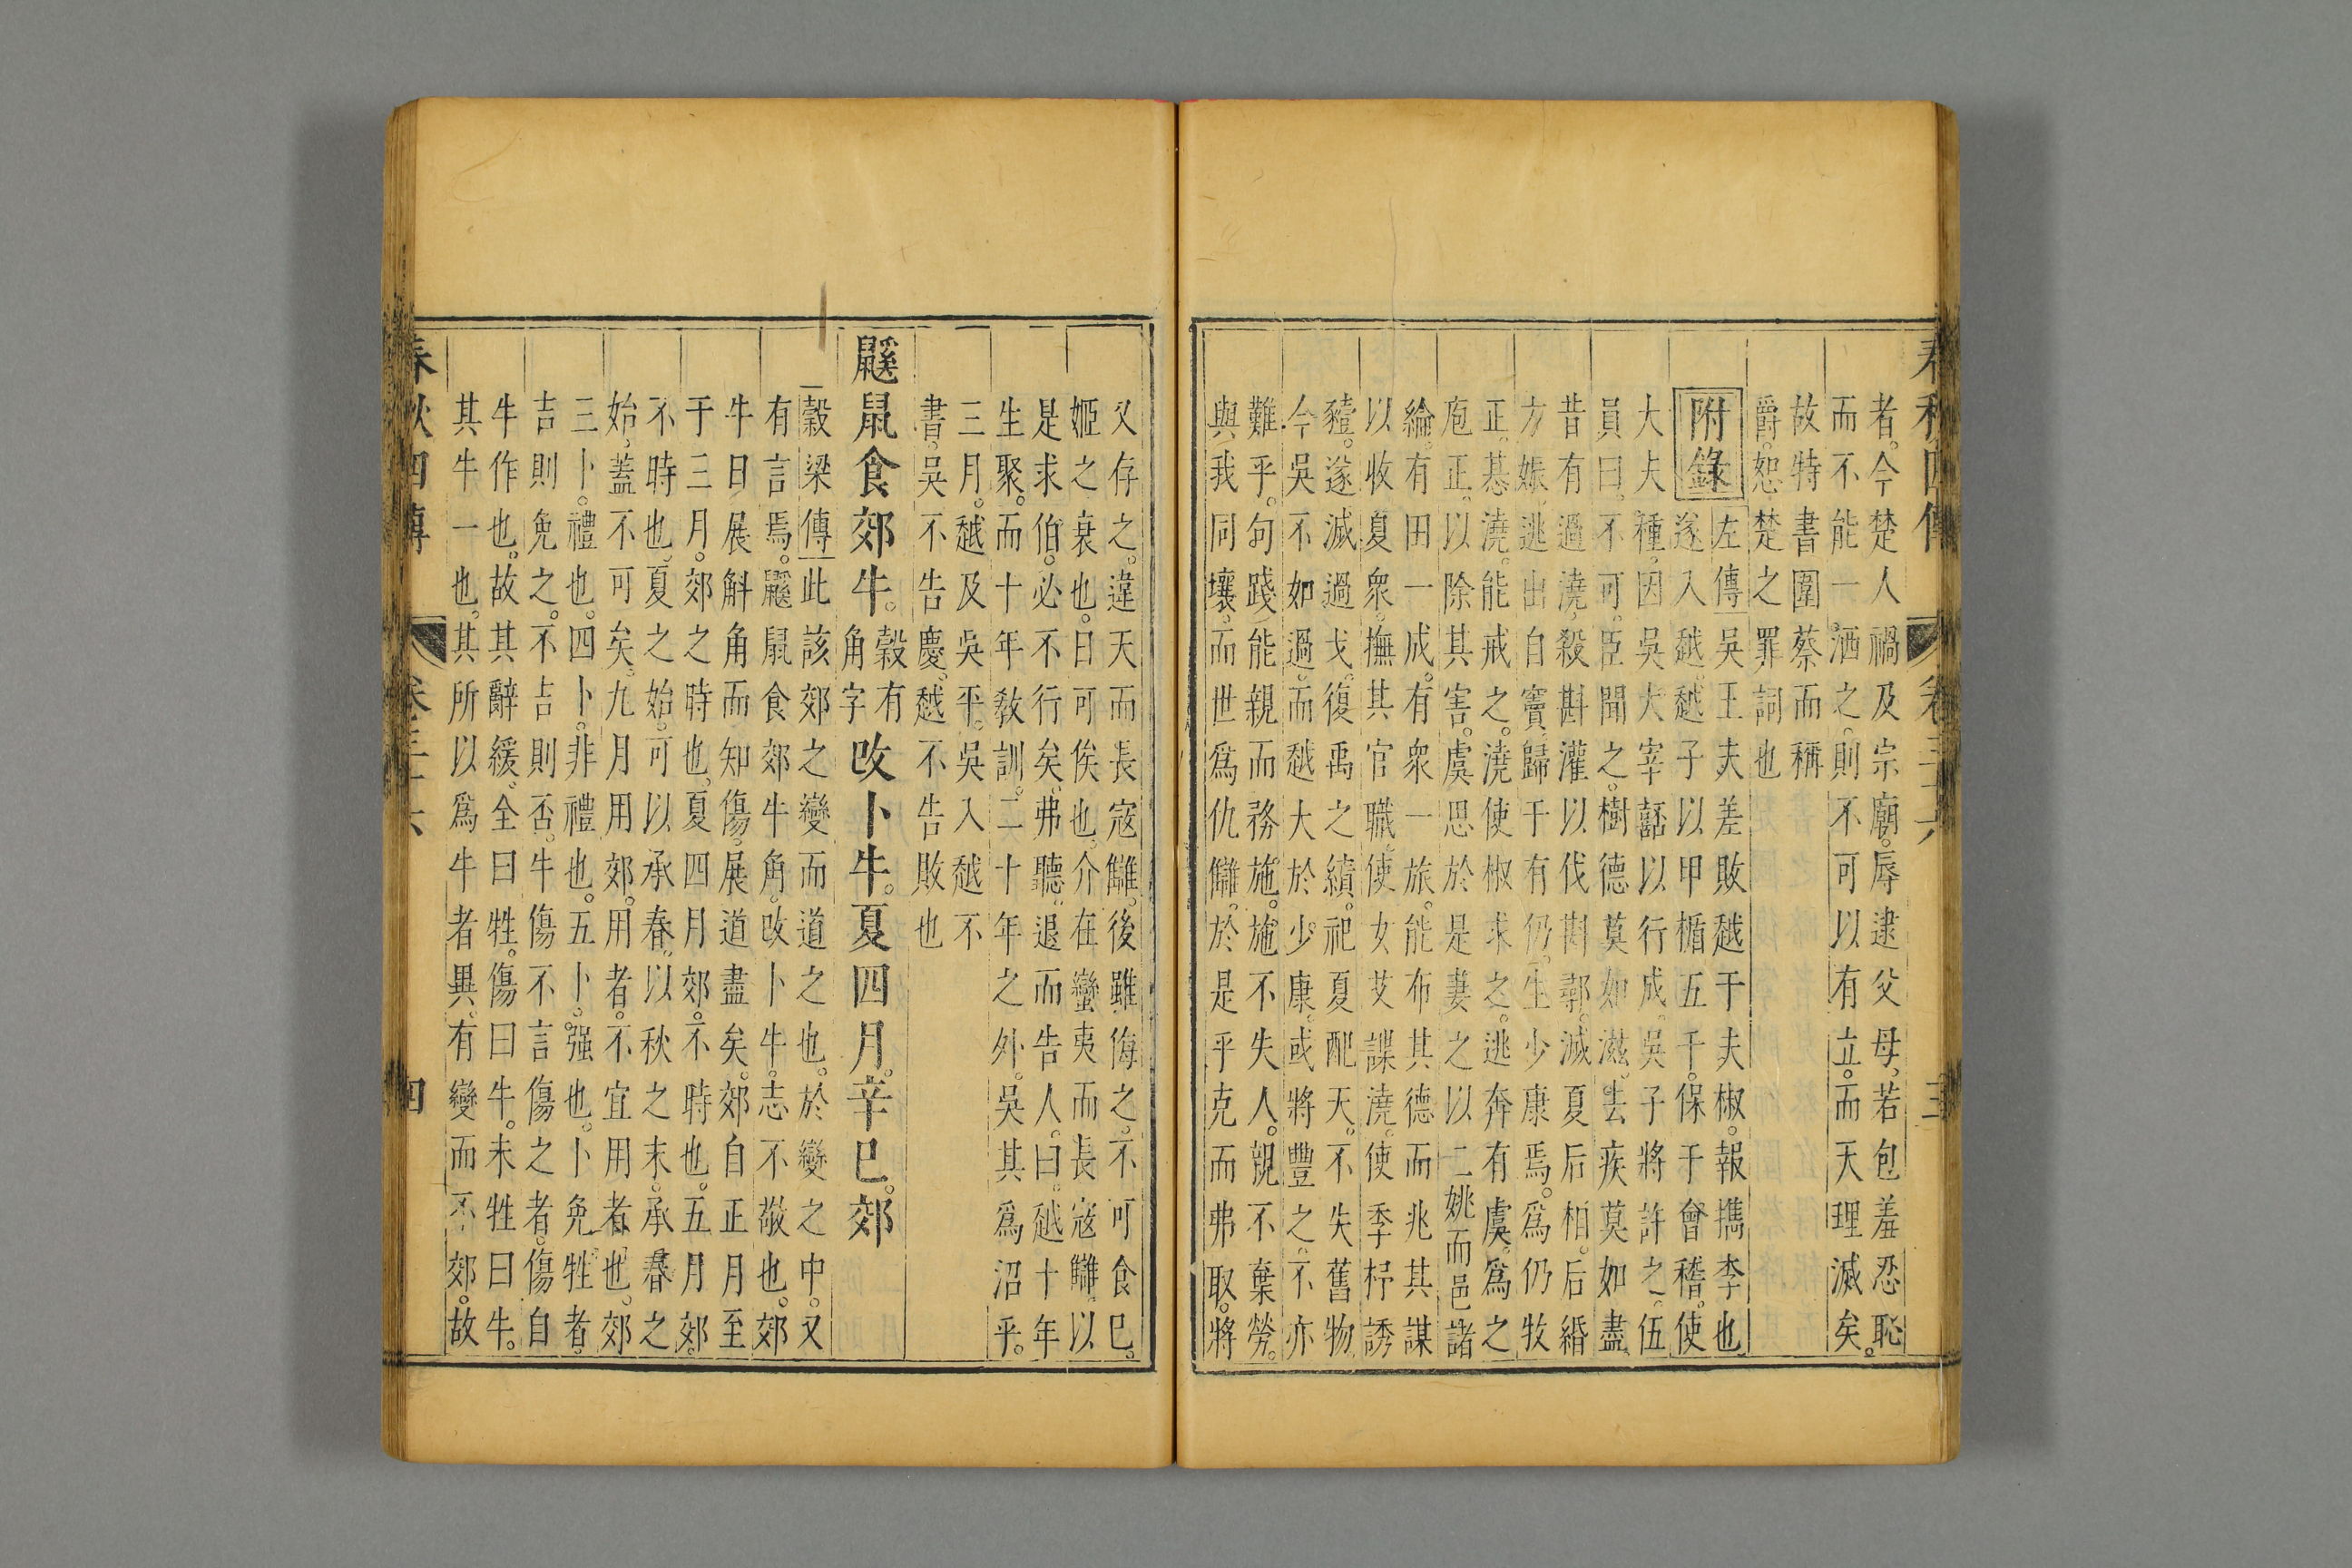 春秋四傳 卷三十六 三
者。今楚人禍及宗廟。辱逮父母。若包羞忍恥
而不能一洒之。則不可以有立。而天理滅矣。
故特書圍蔡而稱
爵。恕楚之罪詞也
附錄 左傳 吳王夫差敗越于夫椒。報檇李也
遂入越。越子以甲楯五千。保于會稽。使
大夫種。因吳大宰嚭以行成。吳子將許之。伍
員曰。不可。臣聞之。樹德莫如滋。去疾莫如盡。
昔有過澆。殺斟灌以伐斟鄩。滅夏后相。后緡
方娠。逃出自竇。歸于有仍。生少康焉。爲仍牧
正。惎澆。能戒之。澆使椒求之。逃奔有虞。爲之
庖正。以除其害。虞思於是妻之以二姚而邑諸
綸。有田一成。有衆一旅。能布其德而兆其謀
以收夏衆。撫其官職。使女艾諜澆。使季杼誘
豷。遂滅過戈。復禹之績。祀夏配天。不失舊物
今吳不如過。而越大於少康。或將豐之。不亦
難乎。句踐能親而務施。施不失人。親不棄勞。
與我同壤。而世爲仇讎。於是乎克而弗取。將
又存之。違天而長寇讎。後雖悔之。不可食已。
姬之衰也。日可俟也。介在蠻夷而長寇讎。以
是求伯。必不行矣。弗聽。退而告人。曰。越十年
生聚。而十年教訓。二十年之外。吳其爲沼乎。
三月。越及吳平。吳入越不
書。吳不告慶。越不告敗也
鼷鼠食郊牛。穀有角字改卜牛。夏四月。辛巳。郊
穀梁傳 此該郊之變而道之也。於變之中。又
有言焉。鼷鼠食郊牛角。改卜牛。志不敬也。郊
牛日展斛角而知傷。展道盡矣。郊自正月至
于三月。郊之時也。夏四月郊。不時也。五月郊。
不時也。夏之始。可以承春。以秋之末。承春之
始。蓋不可矣。九月用郊。用者。不宜用者也。郊
三卜。禮也。四卜。非禮也。五卜。强也。卜免牲者。
吉則免之。不吉則否。牛傷不言傷之者。傷自
牛作也。故其辭緩。全曰牲。傷曰牛。未牲曰牛。
其牛一也。其所以爲牛者異。有變而不郊。故
春秋四傳 卷三十六 四